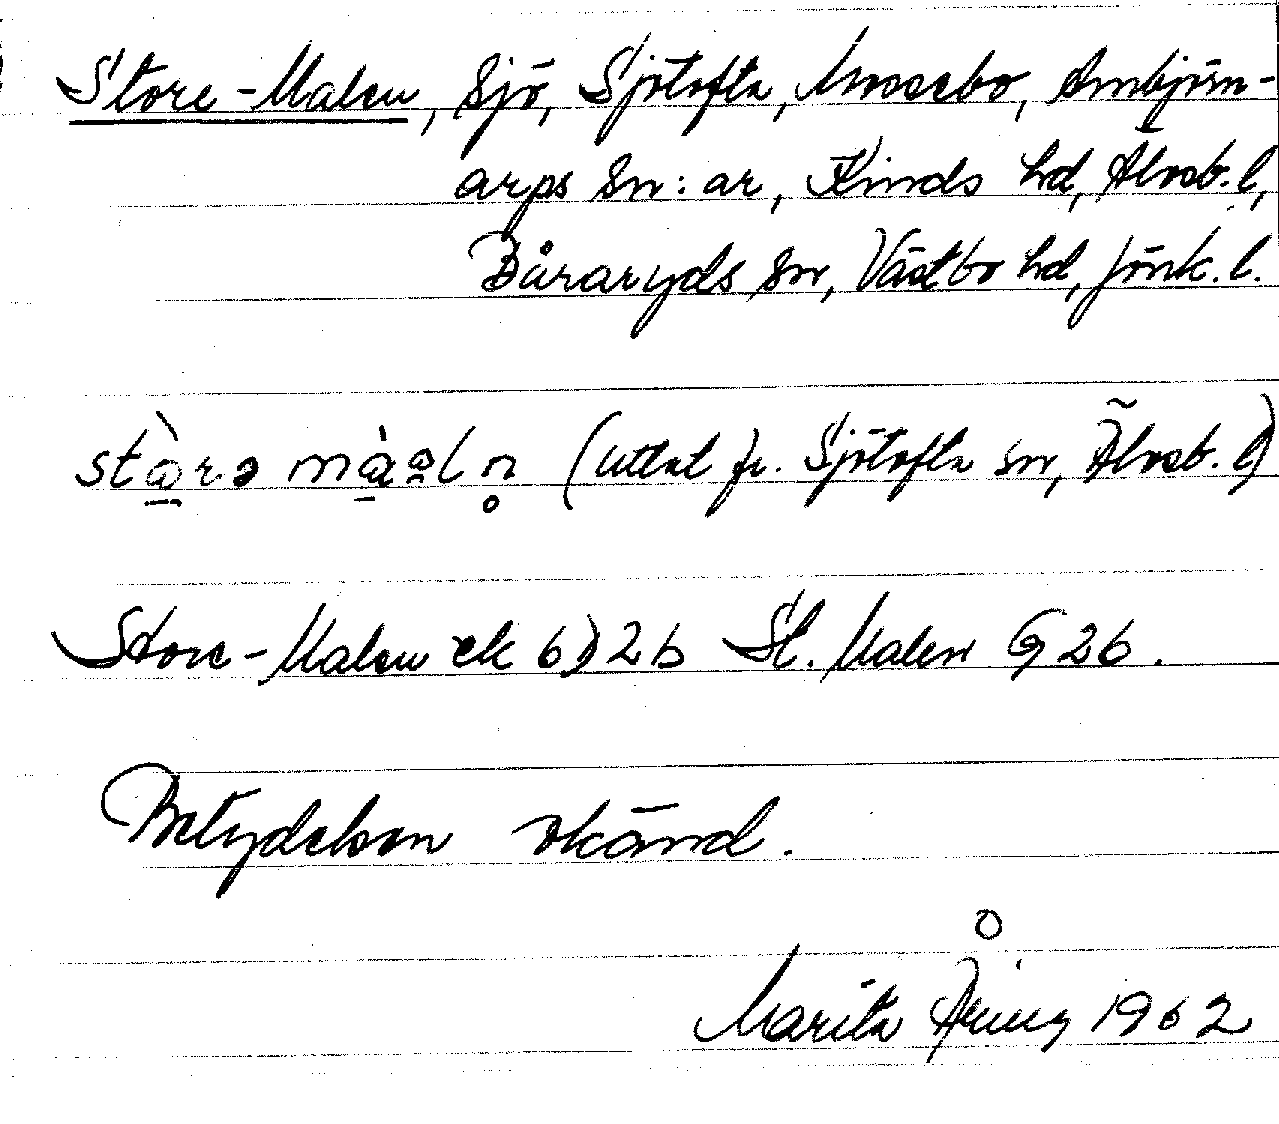 Store-Malen, Sjö, Sjötofta, Mossebo, Ambjörn-
arps sn:ar, Kinds hd, Älvsb. l,
Båraryds sn, Västbo hd, Jönk. l.
(uttal fr. Sjötofta sn, Älvsb. l)
Store-Malen ek 6) 26 St. Malen G 26.
Betydelsen okänd.
Marita 1962